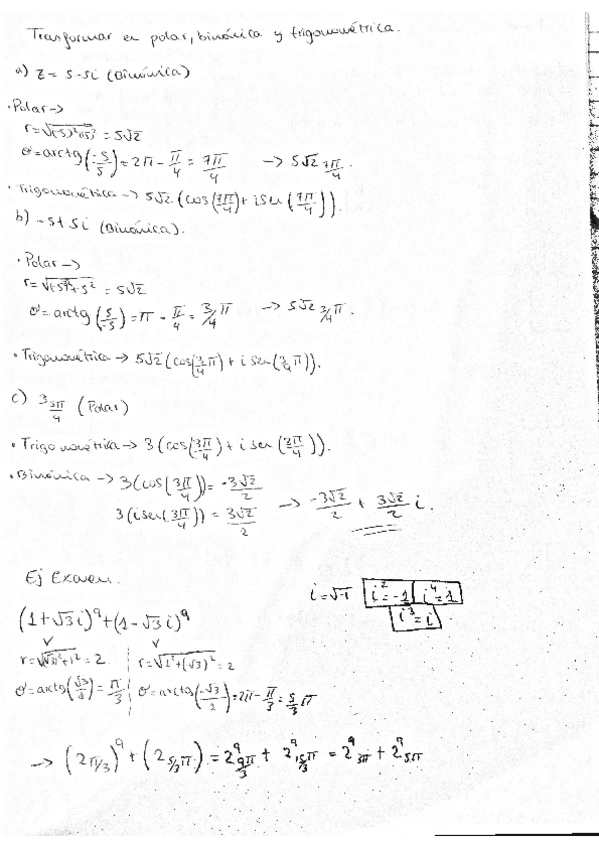 Trasformar en polar, binómica y trigonométrica.
a) z = 5-5i (Binómica)
· Polar →
r = √(-5)²+(5)² = 5√2
θ = arctg(-5/5) = 2π - π/4 = 7π/4 → 5√2 7π/4.
· Trigonométrica → 5√2 (cos(7π/4) + i sen(7π/4)).
b) -5+5i (Binómica).
· Polar →
r = √(-5)²+5² = 5√2
θ = arctg(5/-5) = π - π/4 = 3/4 π → 5√2 3/4 π.
· Trigonométrica → 5√2 (cos(3/4 π) + i sen(3/4 π)).
c) 3 3π/4 (Polar)
· Trigonométrica → 3 (cos(3π/4) + i sen(3π/4)).
· Binómica → 3(cos(3π/4)) = -3√2/2
3(i sen(3π/4)) = 3√2/2 → -3√2/2 + 3√2/2 i.
Ej Examen.
i = √-1 i² = -1 i⁴ = 1
i³ = i
(1+√3i)⁹ + (1-√3i)⁹
r = √(√3)²+1² = 2 r = √1²+(√3)² = 2
θ = arctg(√3/1) = π/3 θ = arctg(-√3/1) = 2π - π/3 = 5/3 π
→ (2 π/3)⁹ + (2 5/3 π)⁹ = 2⁹ 9π/3 + 2⁹ 15/3 π = 2⁹ 3π + 2⁹ 5π